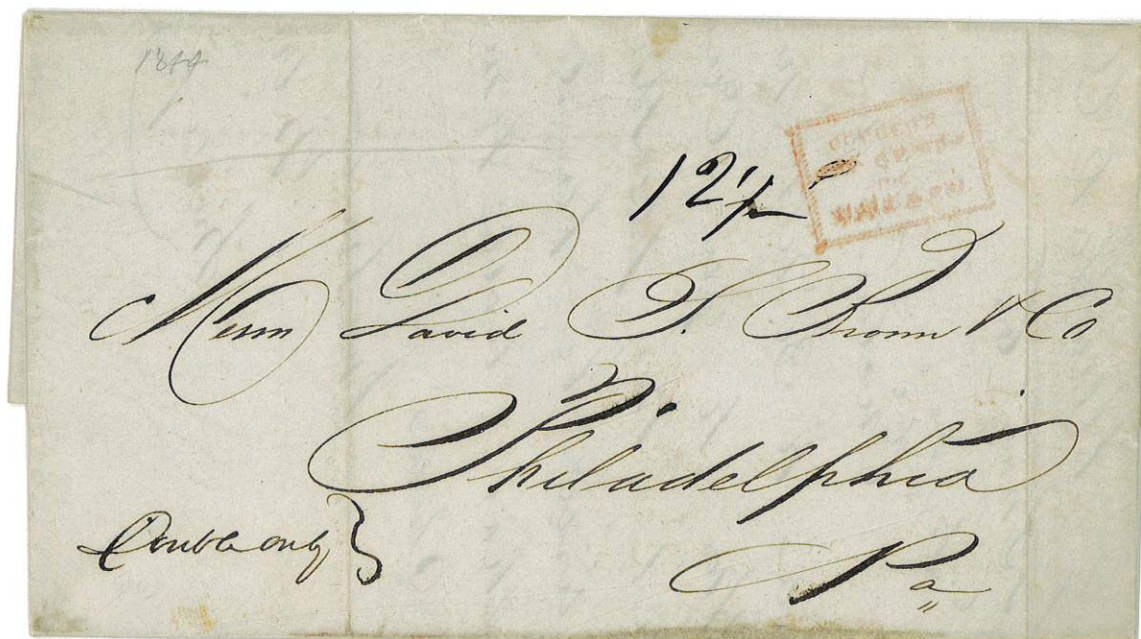 1844
12 1/2
Messrs David S. Brown & Co
Philadelphia
Double only
Pa